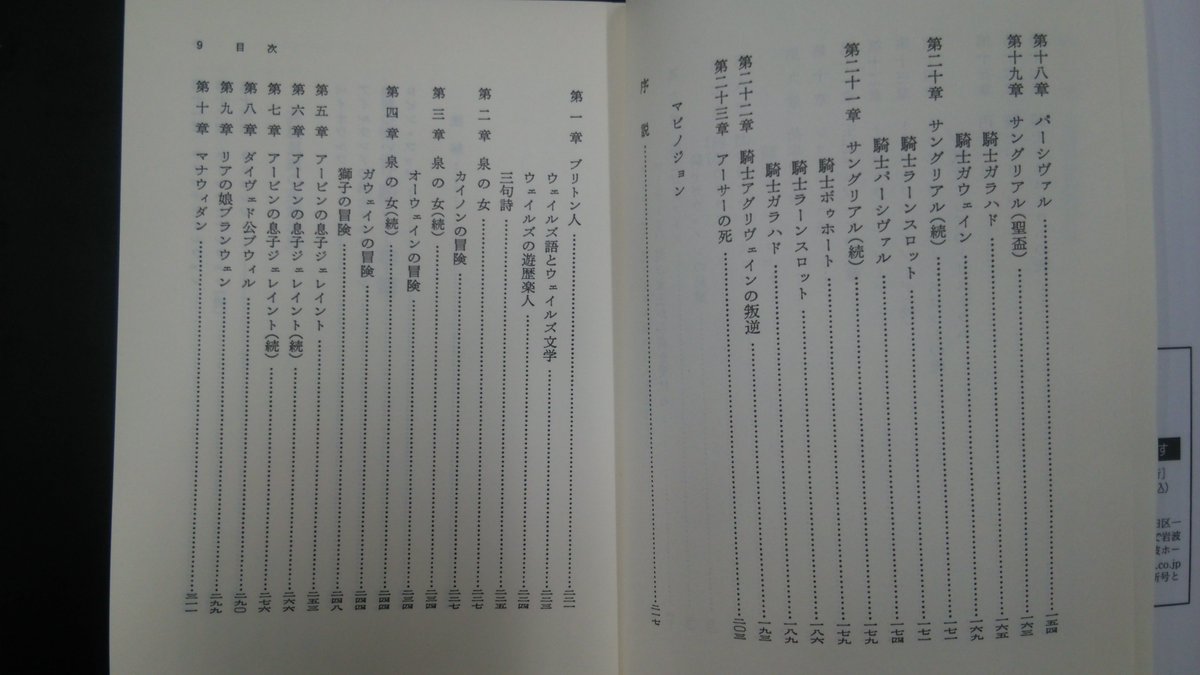 第十八章 パーシヴァル……一五四
第十九章 サングリアル(聖盃)……一六三
騎士ガラハド……一六五
騎士ガウェイン……一六九
第二十章 サングリアル(続)……一七一
騎士ラーンスロット……一七一
騎士パーシヴァル……一七四
第二十一章 サングリアル(続)……一七九
騎士ボゥホート……一七九
騎士ラーンスロット……一八六
騎士ガラハド……一八九
第二十二章 騎士アグリヴェインの叛逆……一九三
第二十三章 アーサーの死……二〇三
マビノジョン
序説……二一七
第一章 ブリトン人……二二一
ウェイルズ語とウェイルズ文学……二二三
ウェイルズの遊歴楽人……二二四
三句詩……二二五
第二章 泉の女……二二七
カイノンの冒険……二二七
第三章 泉の女(続)……二三四
オーウェインの冒険……二三四
第四章 泉の女(続)……二四四
ガウェインの冒険……二四四
獅子の冒険……二四八
第五章 アービンの息子ジェレイント……二五三
第六章 アービンの息子ジェレイント(続)……二六六
第七章 アービンの息子ジェレイント(続)……二七六
第八章 ダイヴェド公プウィル……二九〇
第九章 リアの娘ブランウェン……二九九
第十章 マナウィダン……三一一
9 目次
す
込)
区一
で岩波
ホー
.co.jp
号と